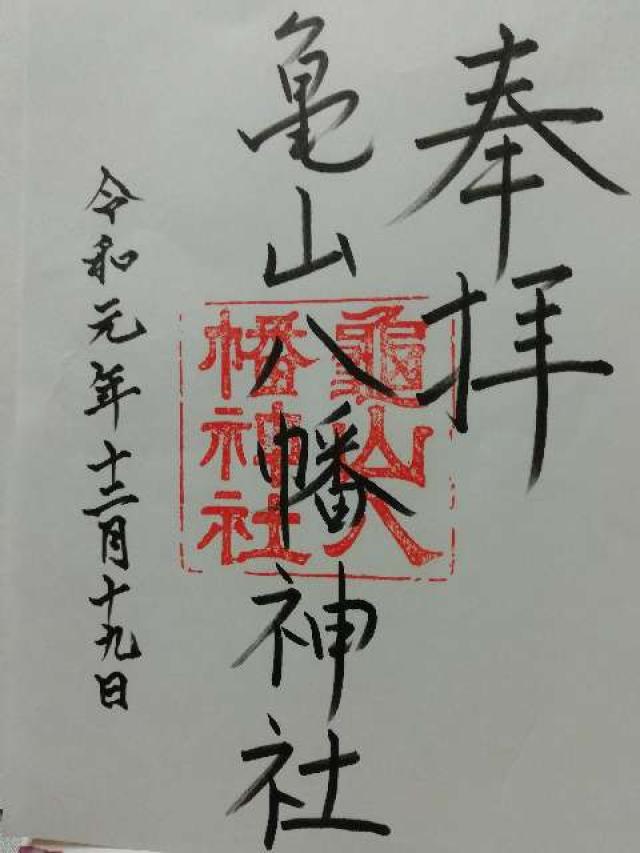 奉拝
亀山八幡神社
龜山八
幡神社
令和元年十二月十九日